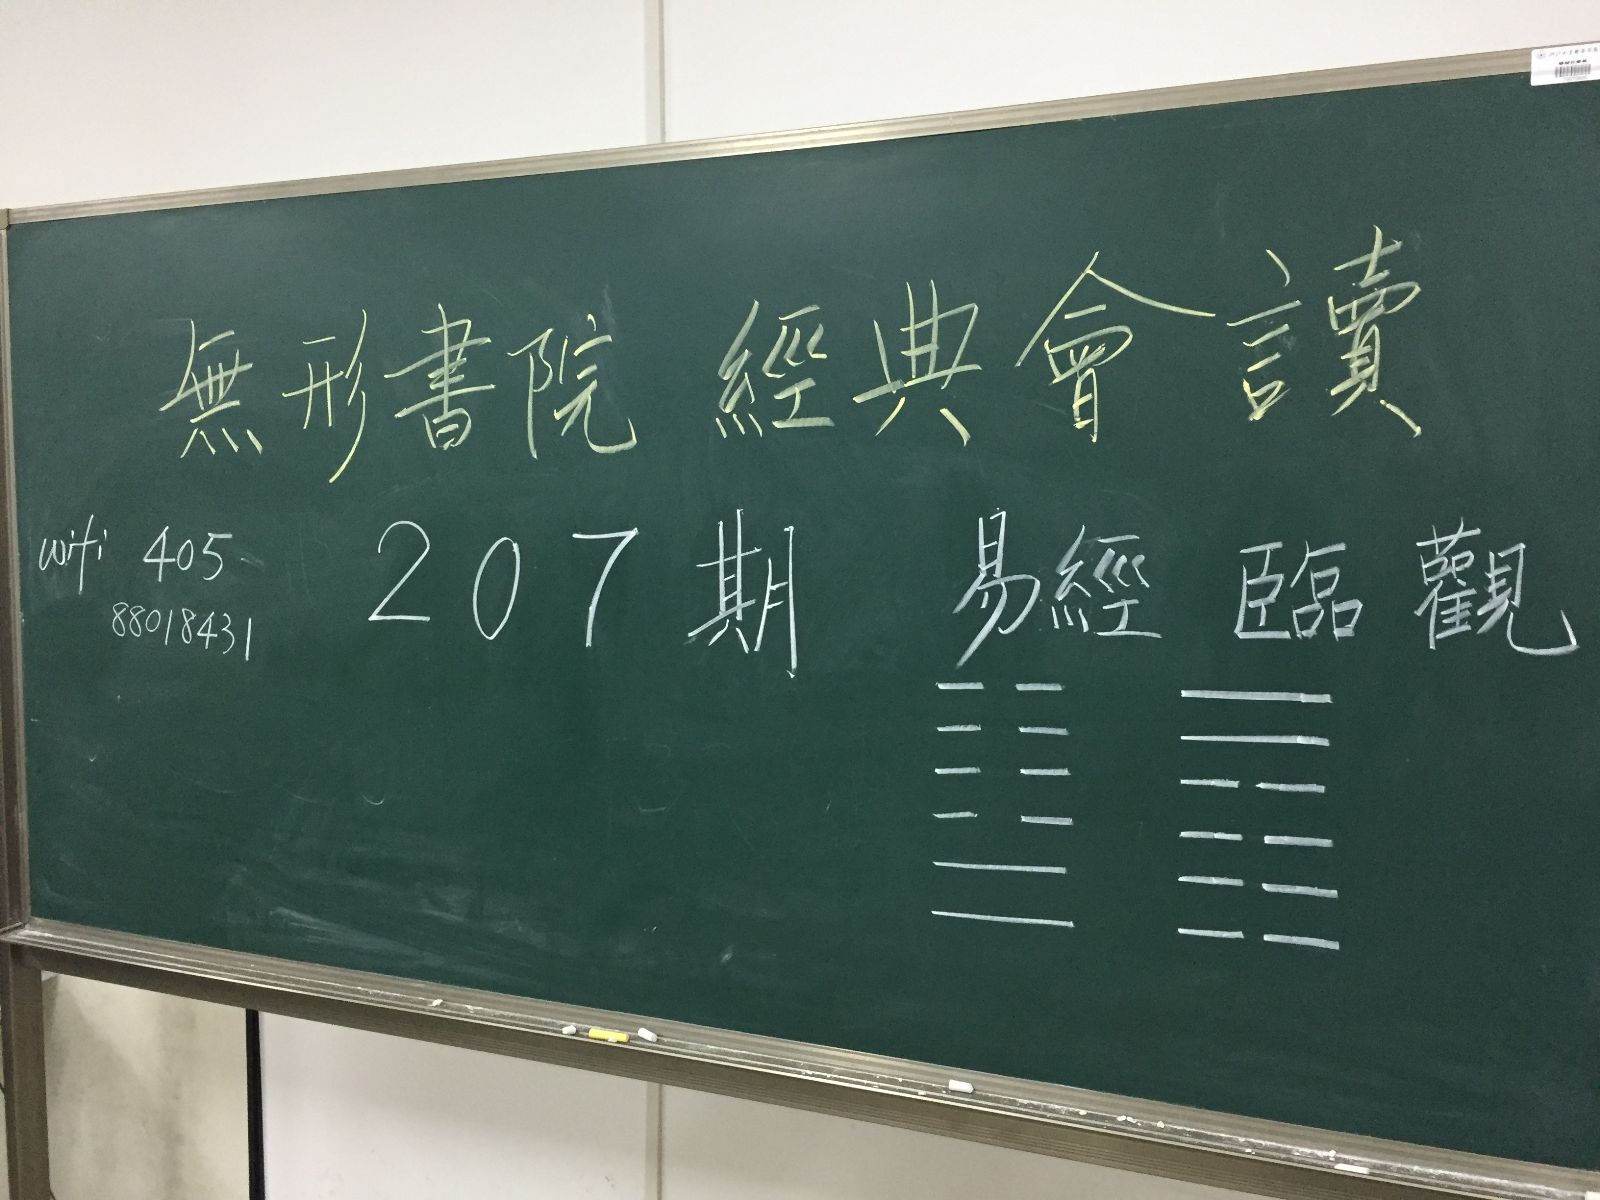 無形書院 經典會讀
wifi 405
88018431
207期 易經 臨觀